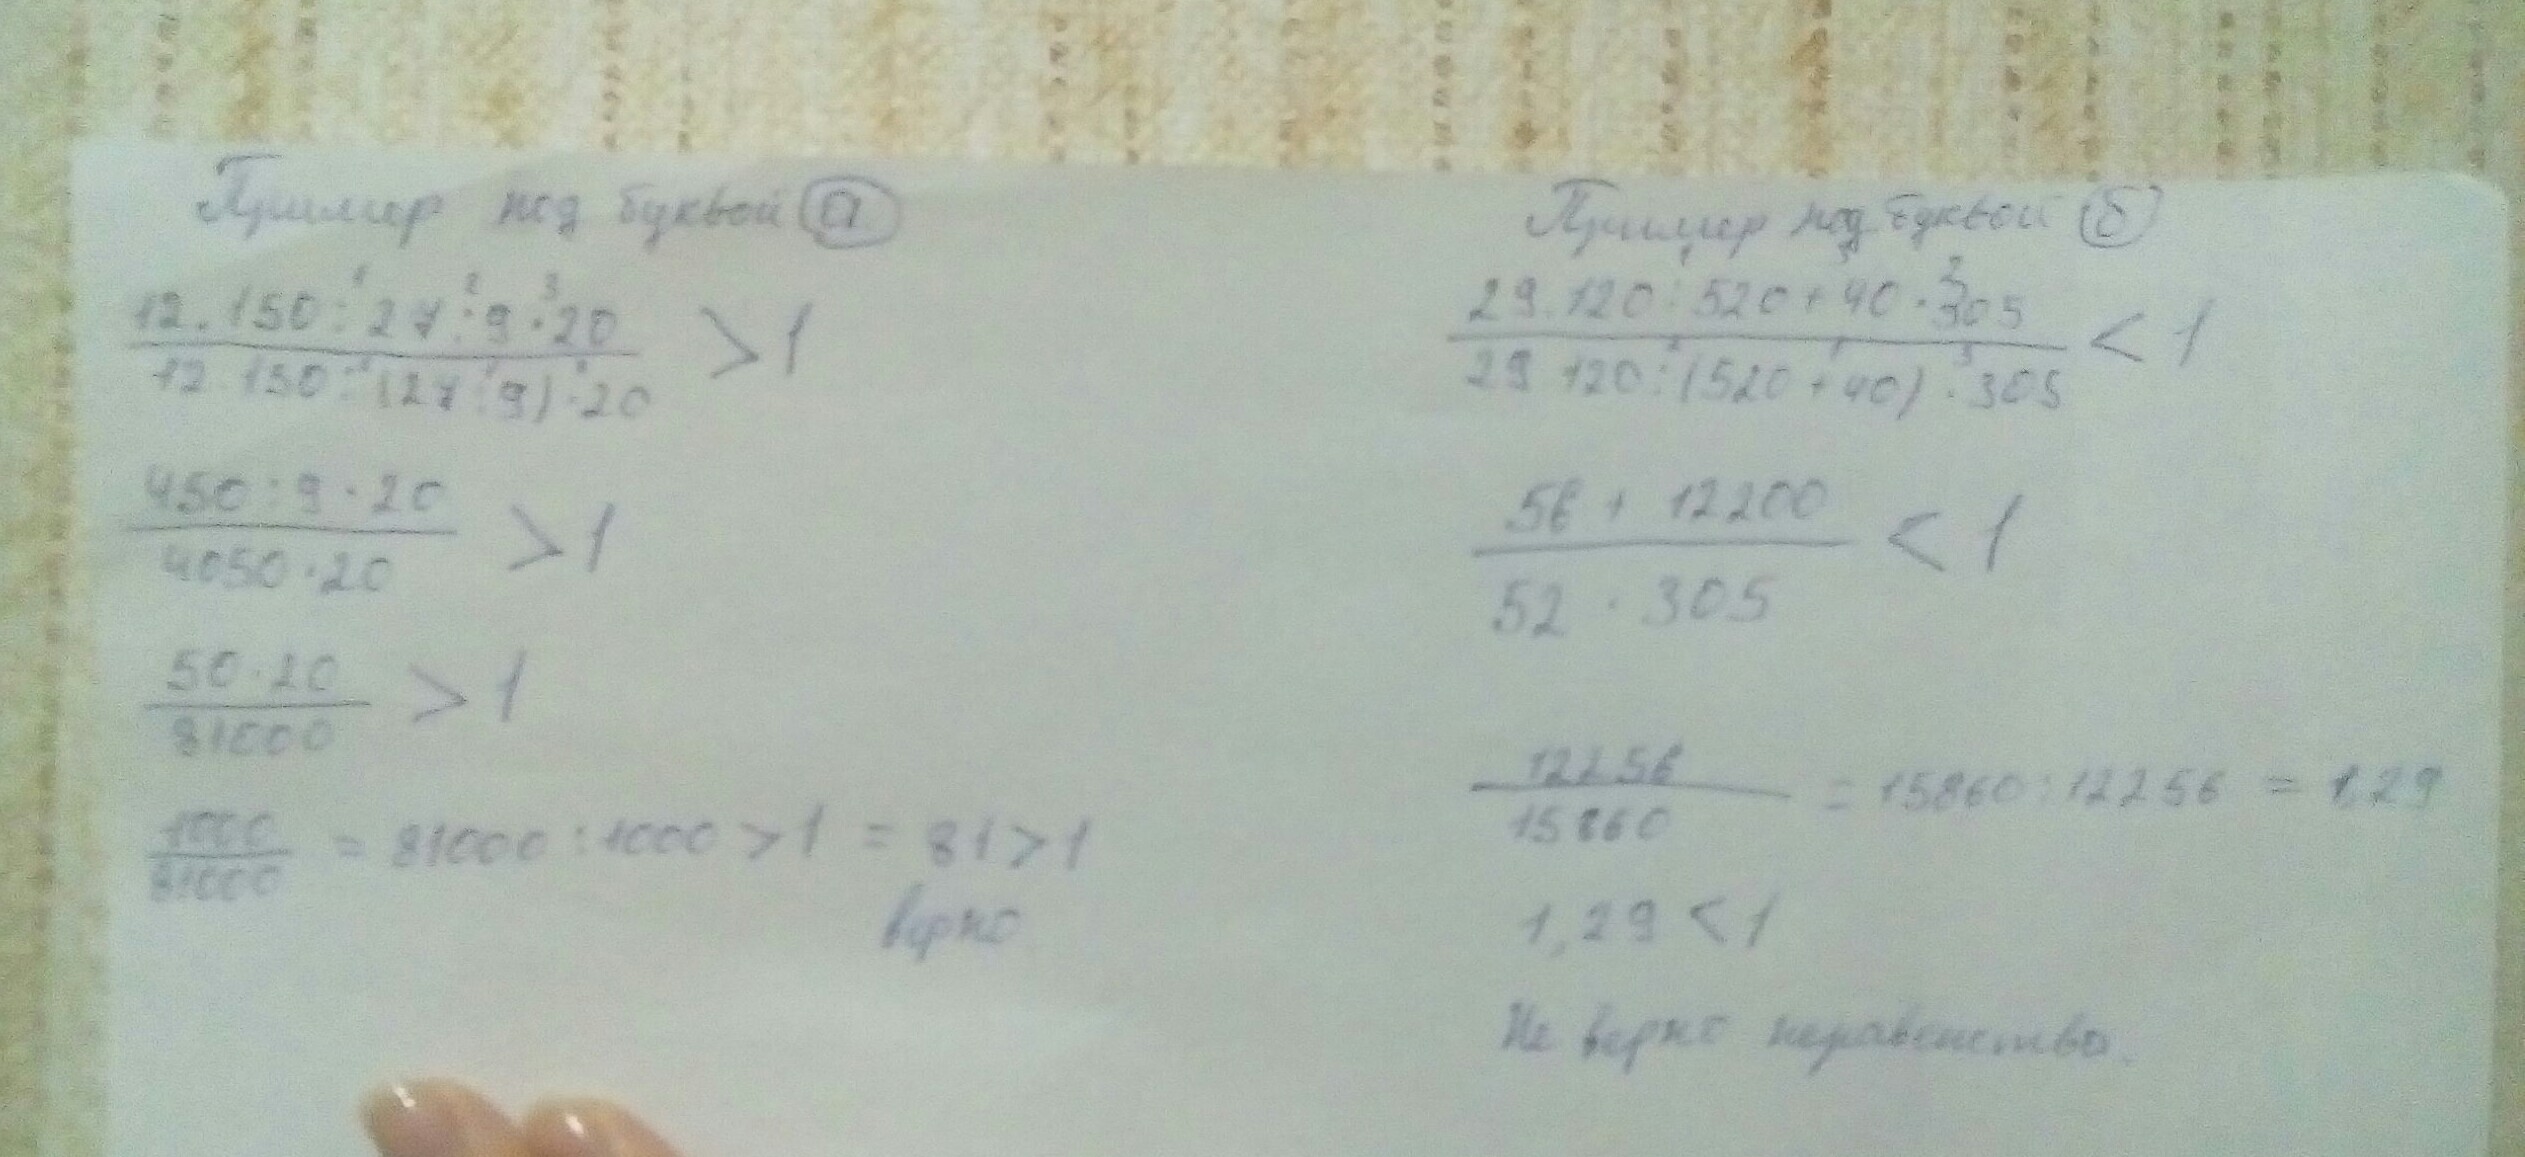 Пример под буквой а
12.150 : 27 : 9 · 20
12 150 : (27 : 9) · 20
> 1
450 : 9 · 20
4050 · 20
> 1
50 · 20
81000
> 1
1000
81000
= 81000 : 1000 > 1 = 81 > 1
верно
Пример под буквой б
29.120 : 520 + 40 · 305
29 120 : (520 + 40) · 305
< 1
56 + 12200
52 · 305
< 1
12256
15860
= 15860 : 12256 = 1,29
1,29 < 1
Не верно неравенство.